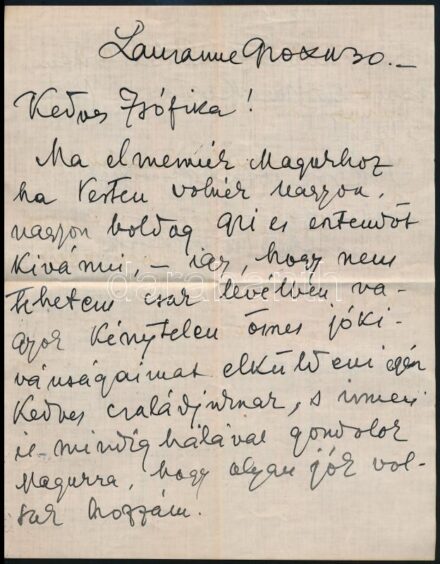 Lausanne 9 XII 30. –
Kedves Zsófika!
Ma elmennék Magukhoz
ha Pesten volnék nagyon,
nagyon boldog új esztendőt
kívánni, – így, hogy nem
tehetem csak levélben va-
gyok kénytelen összes jókí-
vánságaimat elküldeni egész
kedves családjuknak, s innen
is mindig hálával gondolok
Magukra, hogy olyan jók vol-
tak hozzám.
darabanth